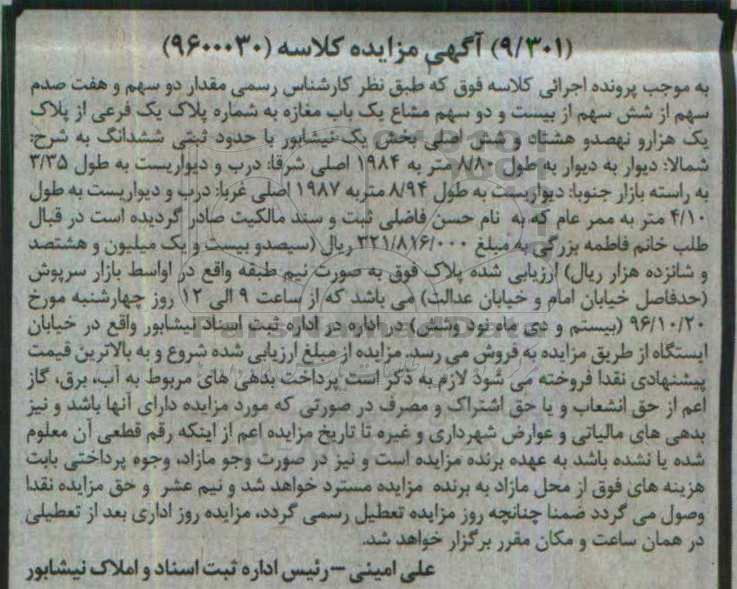 (۹/۳۰۱) آگهی مزایده کلاسه (۹۶۰۰۰۳۰)
به موجب پرونده اجرائی کلاسه فوق که طبق نظر کارشناس رسمی مقدار دو سهم و هفت صدم
سهم از شش سهم از بیست و دو سهم مشاع یک باب مغازه به شماره پلاک یک فرعی از پلاک
یک هزارو نهصدو هشتاد و شش اصلی بخش یک نیشابور با حدود ثبتی ششدانگ به شرح:
شمالا: دیوار به دیوار به طول ۸/۸۰ متر به ۱۹۸۴ اصلی شرقا: درب و دیواریست به طول ۳/۳۵
به راسته بازار جنوبا: دیواریست به طول ۸/۹۴ متربه ۱۹۸۷ اصلی غربا: درب و دیواریست به طول
۴/۱۰ متر به ممر عام که به نام حسن فاضلی ثبت و سند مالکیت صادر گردیده است در قبال
طلب خانم فاطمه بزرگی به مبلغ ۳۲۱/۸۱۶/۰۰۰ ریال (سیصدو بیست و یک میلیون و هشتصد
و شانزده هزار ریال) ارزیابی شده پلاک فوق به صورت نیم طبقه واقع در اواسط بازار سرپوش
(حدفاصل خیابان امام و خیابان عدالت) می باشد که از ساعت ۹ الی ۱۲ روز چهارشنبه مورخ
۹۶/۱۰/۲۰ (بیستم و دی ماه نود وشش) در اداره در اداره ثبت اسناد نیشابور واقع در خیابان
ایستگاه از طریق مزایده به فروش می رسد. مزایده از مبلغ ارزیابی شده شروع و به بالاترین قیمت
پیشنهادی نقدا فروخته می شود لازم به ذکر است پرداخت بدهی های مربوط به آب، برق، گاز
اعم از حق انشعاب و یا حق اشتراک و مصرف در صورتی که مورد مزایده دارای آنها باشد و نیز
بدهی های مالیاتی و عوارض شهرداری و غیره تا تاریخ مزایده اعم از اینکه رقم قطعی آن معلوم
شده یا نشده باشد به عهده برنده مزایده است و نیز در صورت وجو مازاد، وجوه پرداختی بابت
هزینه های فوق از محل مازاد به برنده مزایده مسترد خواهد شد و نیم عشر و حق مزایده نقدا
وصول می گردد ضمنا چنانچه روز مزایده تعطیل رسمی گردد، مزایده روز اداری بعد از تعطیلی
در همان ساعت و مکان مقرر برگزار خواهد شد.
علی امینی – رئیس اداره ثبت اسناد و املاک نیشابور
ParsNamadData